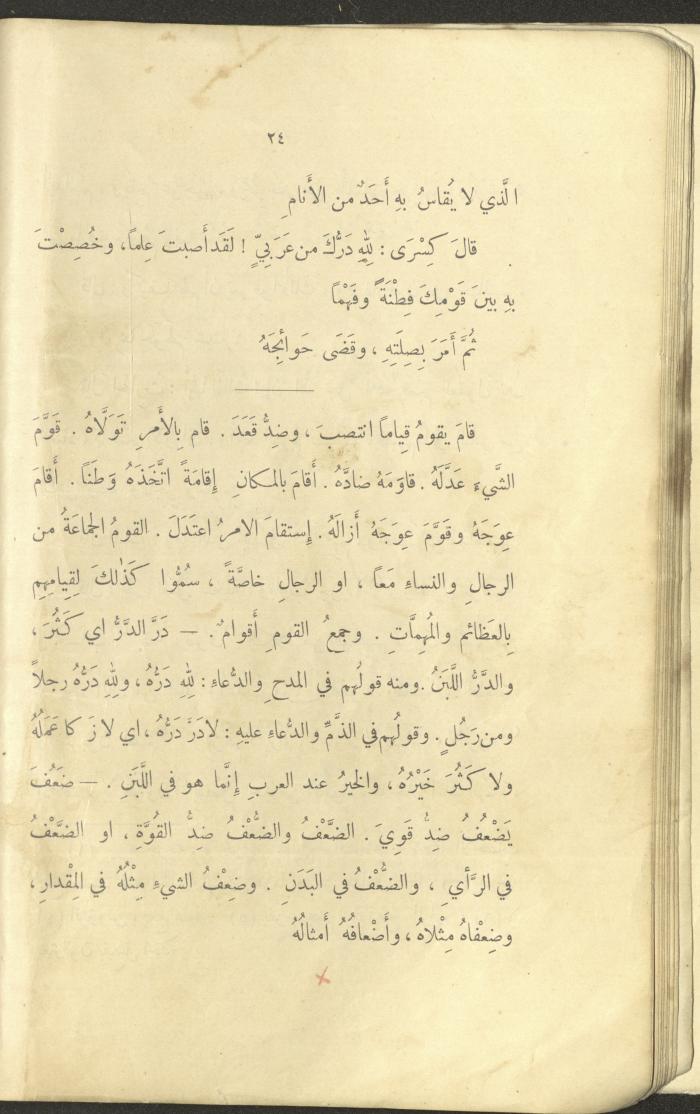 ٢٤
الَّذي لا يُقاسُ بهِ أَحَدٌ من الأَنامِ
قالَ كِسْرَى : لِلّهِ دَرُّكَ من عَرَبيّ ! لَقَد أَصبتَ عِلماً، وخُصِصْتَ
بهِ بينَ قَوْمِكَ فِطْنَةً وفَهْمًا
ثُمَّ أَمَرَ بِصِلَتِهِ ، وقَضَى حَوائِجَهُ
قامَ يقومُ قِياماً انتصبَ ، وضِدُّ قَعَدَ . قام بِالأَمرِ تَوَلَّاهُ . قَوَّمَ
الشَّيءَ عَدَّلَهُ . قاوَمَهُ ضادَّهُ . أَقامَ بالمكانِ إِقامَةً اتَّخَذَهُ وَطَنًا . أَقامَ
عِوَجَهُ وقَوَّمَ عِوَجَهُ أَزالَهُ . إِستقامَ الامرُ اعتَدَلَ . القومُ الجماعَةُ من
الرجالِ والنساءِ مَعاً ، او الرجالِ خاصَّةً ، سُمُّوا كَذٰلكَ لِقِيامِهِم
بِالعَظائمِ والمُهِمَّاتِ . وجمعُ القومِ أَقوامٌ . — دَرَّ الدَّرُّ اي كَثُرَ ،
والدَّرُّ اللَّبَنُ . ومنه قولُهم في المدحِ والدُّعاءِ : لِلّهِ دَرُّهُ ، ولِلّهِ دَرُّهُ رجلاً
ومن رَجُلٍ . وقولُهم في الذَّمِّ والدُّعاءِ عليهِ : لا دَرَّ دَرُّهُ ، اي لا زَكا عَمَلُهُ
ولا كَثُرَ خَيْرُهُ ، والخيرُ عند العربِ إِنَّما هو في اللَّبَنِ . — ضَعُفَ
يَضْعُفُ ضِدُّ قَوِيَ . الضَّعْفُ والضُّعْفُ ضِدُّ القُوَّةِ ، او الضَّعْفُ
في الرَّأي ، والضُّعْفُ في البَدَنِ . وضِعْفُ الشيءِ مِثْلُهُ في المِقْدارِ ،
وضِعْفاهُ مِثْلاهُ ، وأَضْعافُهُ أَمثالُهُ